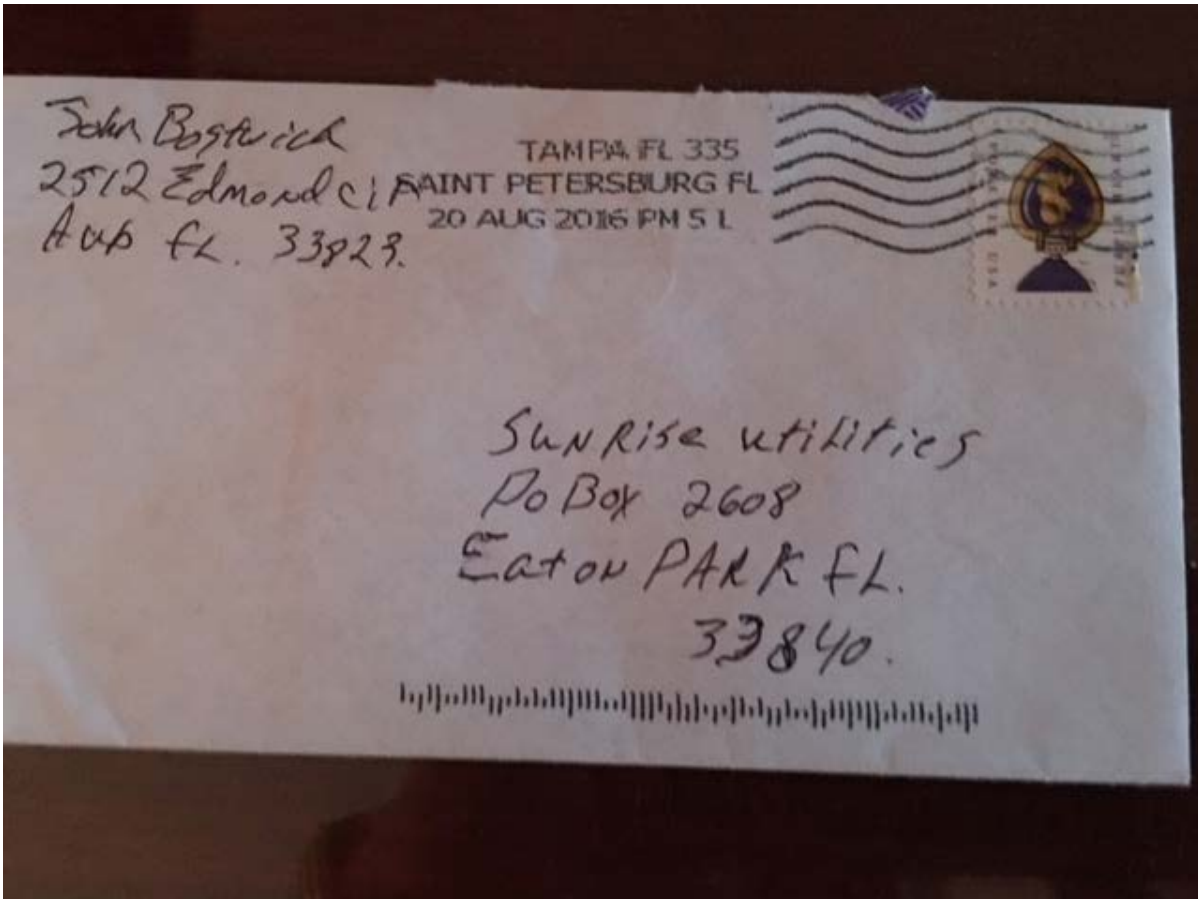 John Bostwick
2512 Edmond cir
Aub fL. 33823.
TAMPA FL 335
SAINT PETERSBURG FL
20 AUG 2016 PM 5 L
PURPLE HEART
FOREVER USA
SunRise utilities
Po Box 2608
Eaton PARK fL.
33840.